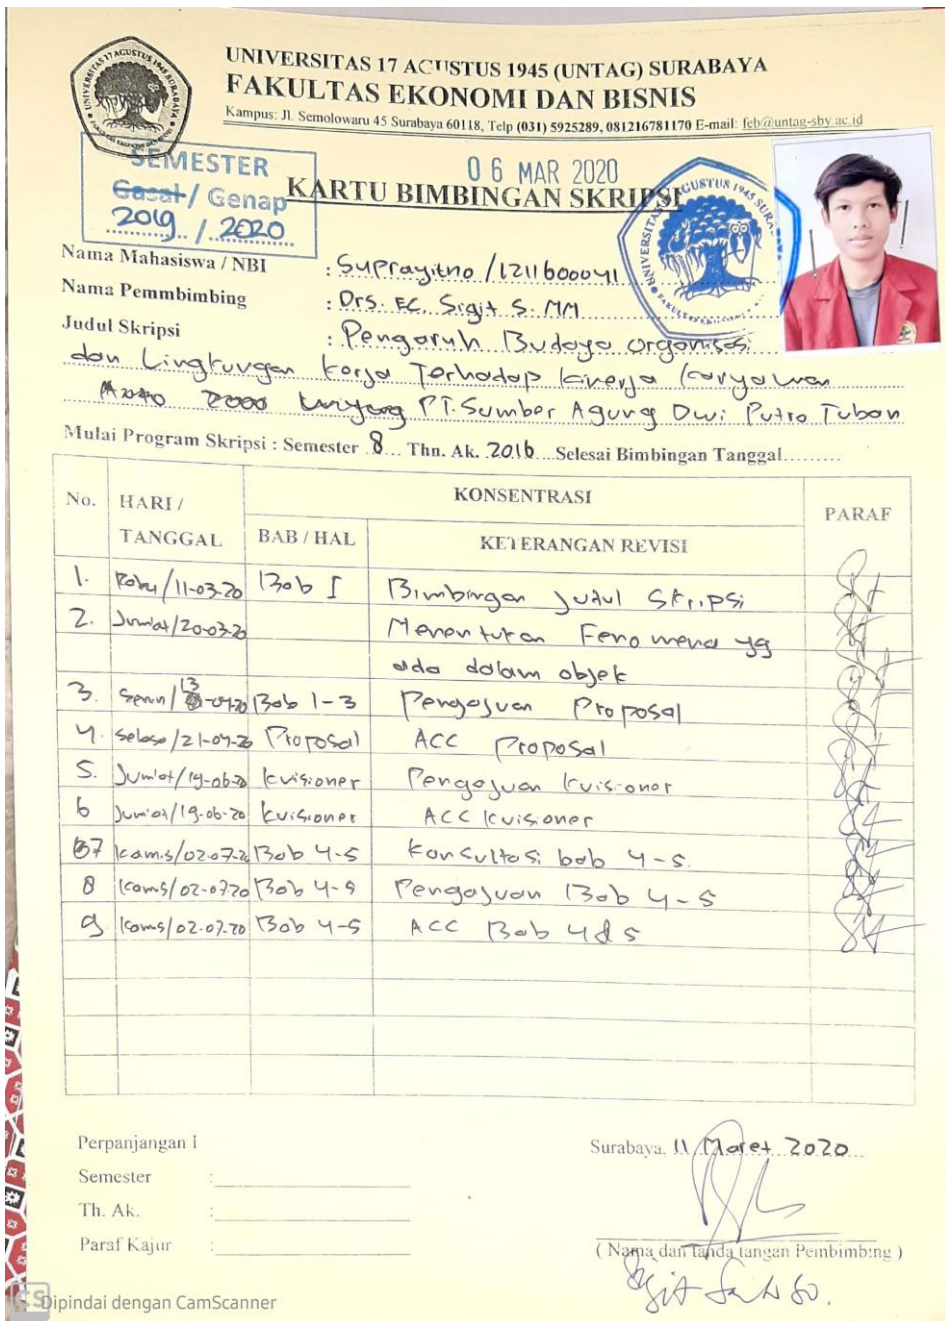 UNIVERSITAS 17 AGUSTUS 1945 (UNTAG) SURABAYA
FAKULTAS EKONOMI DAN BISNIS
Kampus: Jl. Semolowaru 45 Surabaya 60118, Telp (031) 5925289, 081216781170 E-mail: feb@untag-sby.ac.id
SEMESTER
Gasal / Genap
2019 / 2020
06 MAR 2020
KARTU BIMBINGAN SKRIPSI
Nama Mahasiswa / NBI : Suprayitno / 1211600041
Nama Pemmbimbing : Drs. EC. Sigit S. MM
Judul Skripsi : Pengaruh Budaya organisasi
dan Lingkungan kerja Terhadap kinerja karyawan
2000 PT. Sumber Agung Dwi Putro Tuban
Mulai Program Skripsi : Semester 8 Thn. Ak. 2016 Selesai Bimbingan Tanggal.........
No. HARI / TANGGAL KONSENTRASI PARAF
BAB / HAL KETERANGAN REVISI
1. Rabu/11-03-20 Bab I Bimbingan Judul Skripsi
2. Jumiat/20-03-20 Menentukan Fenomena yg
ada dalam objek
3. Senin/13-04-20 Bab 1-3 Pengajuan Proposal
4. Selasa/21-04-20 Proposal ACC Proposal
5. Jumiat/19-06-20 kuisioner Pengajuan kuisioner
6 Jumiat/19-06-20 kuisioner ACC kuisioner
7 kamis/02-07-20 Bab 4-5 konsultasi bab 4-5.
8 kamis/02-07-20 Bab 4-5 Pengajuan Bab 4-5
9 kamis/02-07-20 Bab 4-5 ACC Bab 4 & 5
Perpanjangan I
Semester :
Th. Ak. :
Paraf Kajur :
Surabaya, 11 Maret 2020
( Nama dan tanda tangan Pembimbing )
CS Dipindai dengan CamScanner